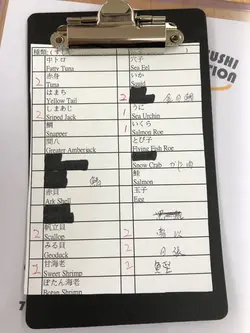 種類:
中トロ
Fatty Tuna
2 赤身
Tuna
はまち
Yellow Tail
2 しまあじ
Sriped Jack
鯛
Snapper
間八
Greater Amberjack
赤貝
Ark Shell
2 帆立貝
Scallop
みる貝
Geoduck
2 甘海老
Sweet Shrimp
ぼたん海老
Botan Shrimp
穴子
Sea Eel
いか
Squid
2 金目鯛
1 うに
Sea Urchin
1 いくら
Salmon Roe
とび子
Flying Fish Roe
Snow Crab
鮭
Salmon
玉子
Egg
2
2
2
USHI
TION
7